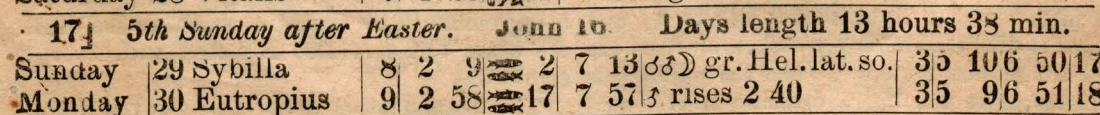 17] 5th Sunday after Easter. John 16. Days length 13 hours 38 min.
Sunday 29 Sybilla 8 2 9 2 7 13 ☌♂☽ gr. Hel. lat. so. 3 5 10 6 50 17
Monday 30 Eutropius 9 2 58 17 7 57 ♂ rises 2 40 3 5 9 6 51 18